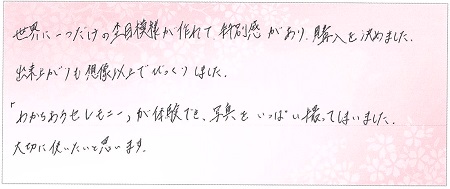 世界に一つだけの杢目模様が作れて、特別感があり、購入を決めました。
出来上がりも想像以上でびっくりしました。
「わかちあうセレモニー」が体験でき、写真をいっぱい撮ってしまいました。
大切に使いたいと思います。